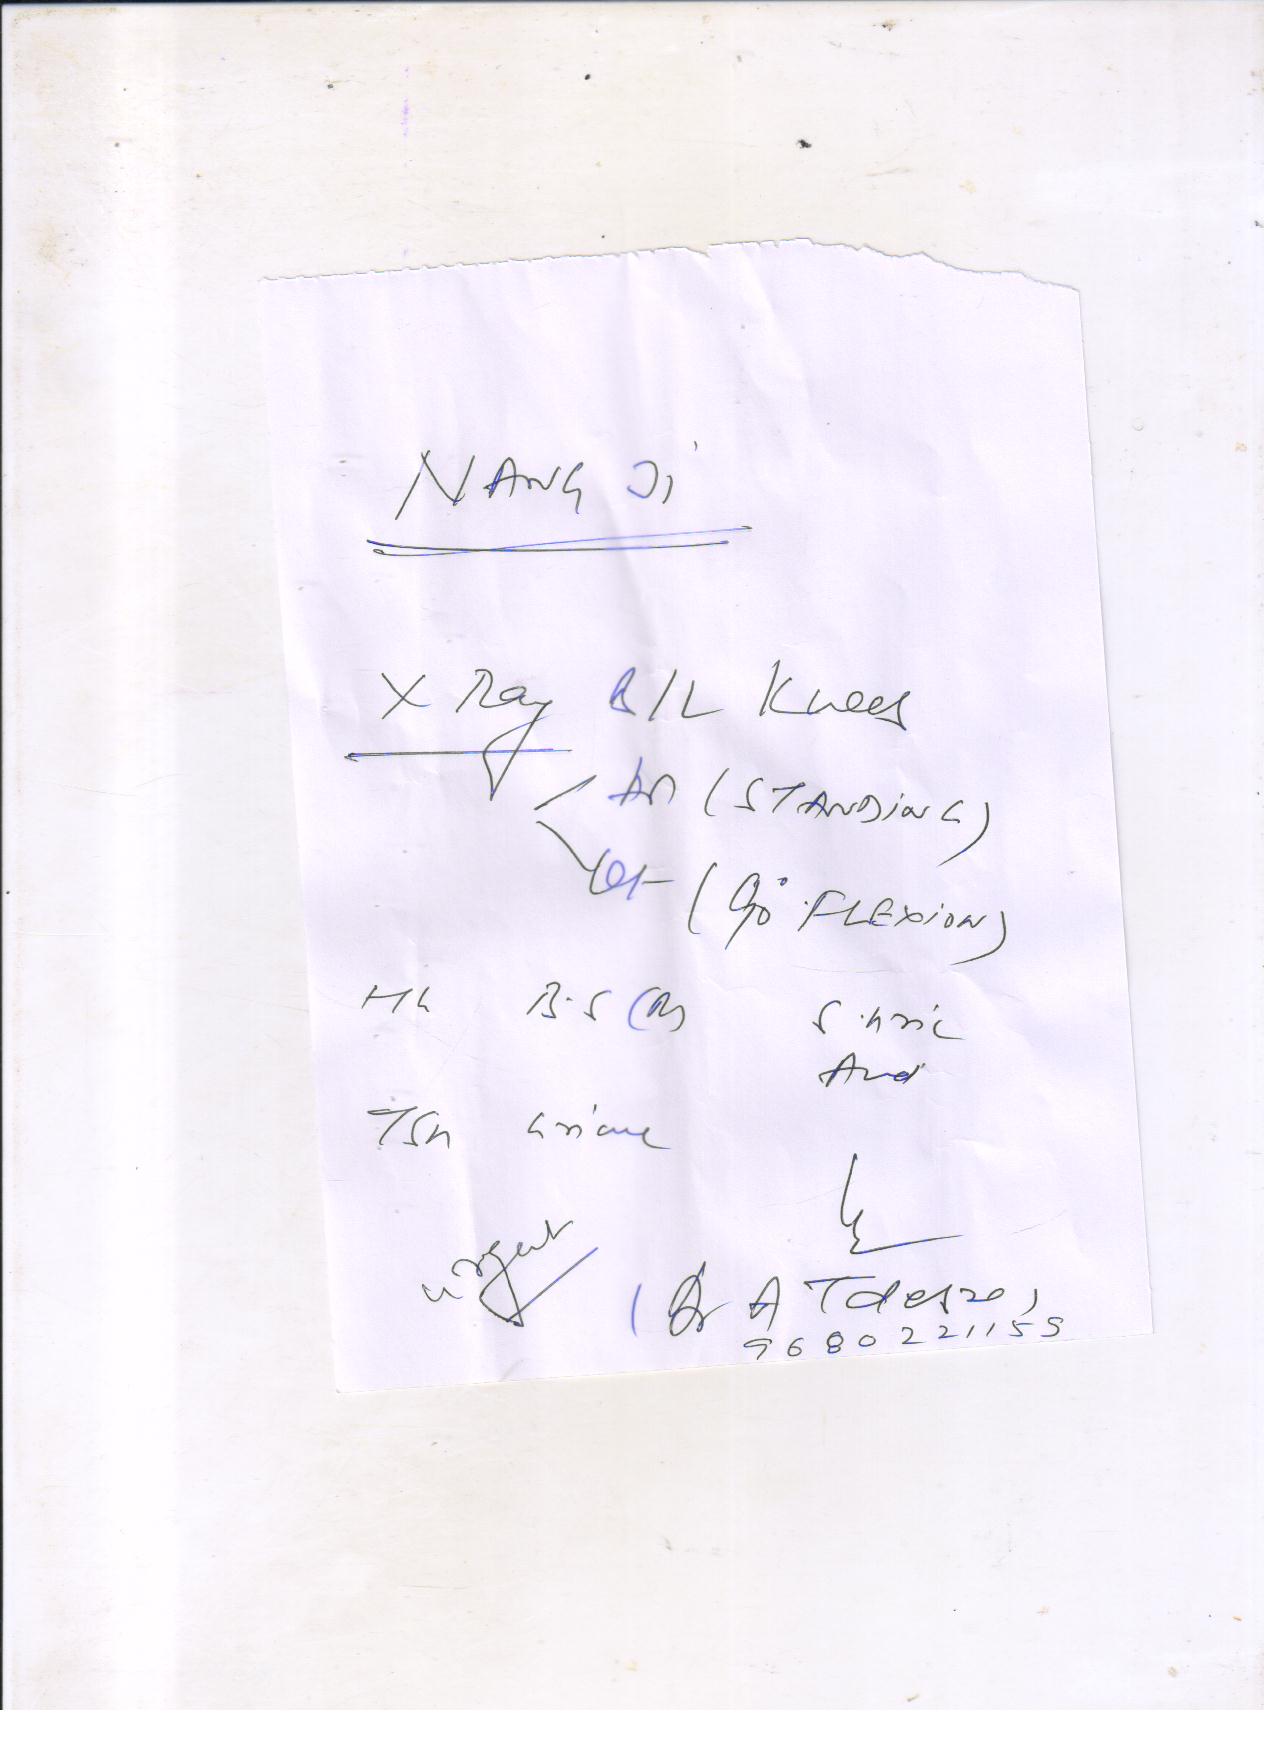 NANG Ji
X Ray B/L Knees
AP (STANDING)
Lat (90° FLEXION)
Hb B.S (R) S. Uric
Acid
TSH Urine
urgent
(Dr A
9680221155